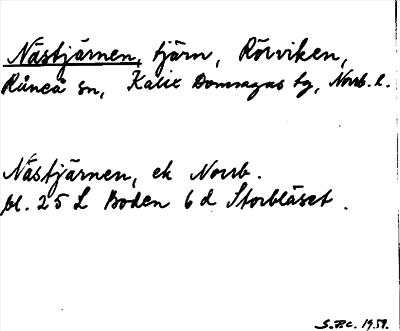 Nästjärnen, tjärn, Rörviken,
Råneå sn, Kalix Domsagas tg, Norrb. l.
Nästjärnen, ek Norrb.
bl. 25 L Boden 6 d Storblåset.
S.B.C. 1959.